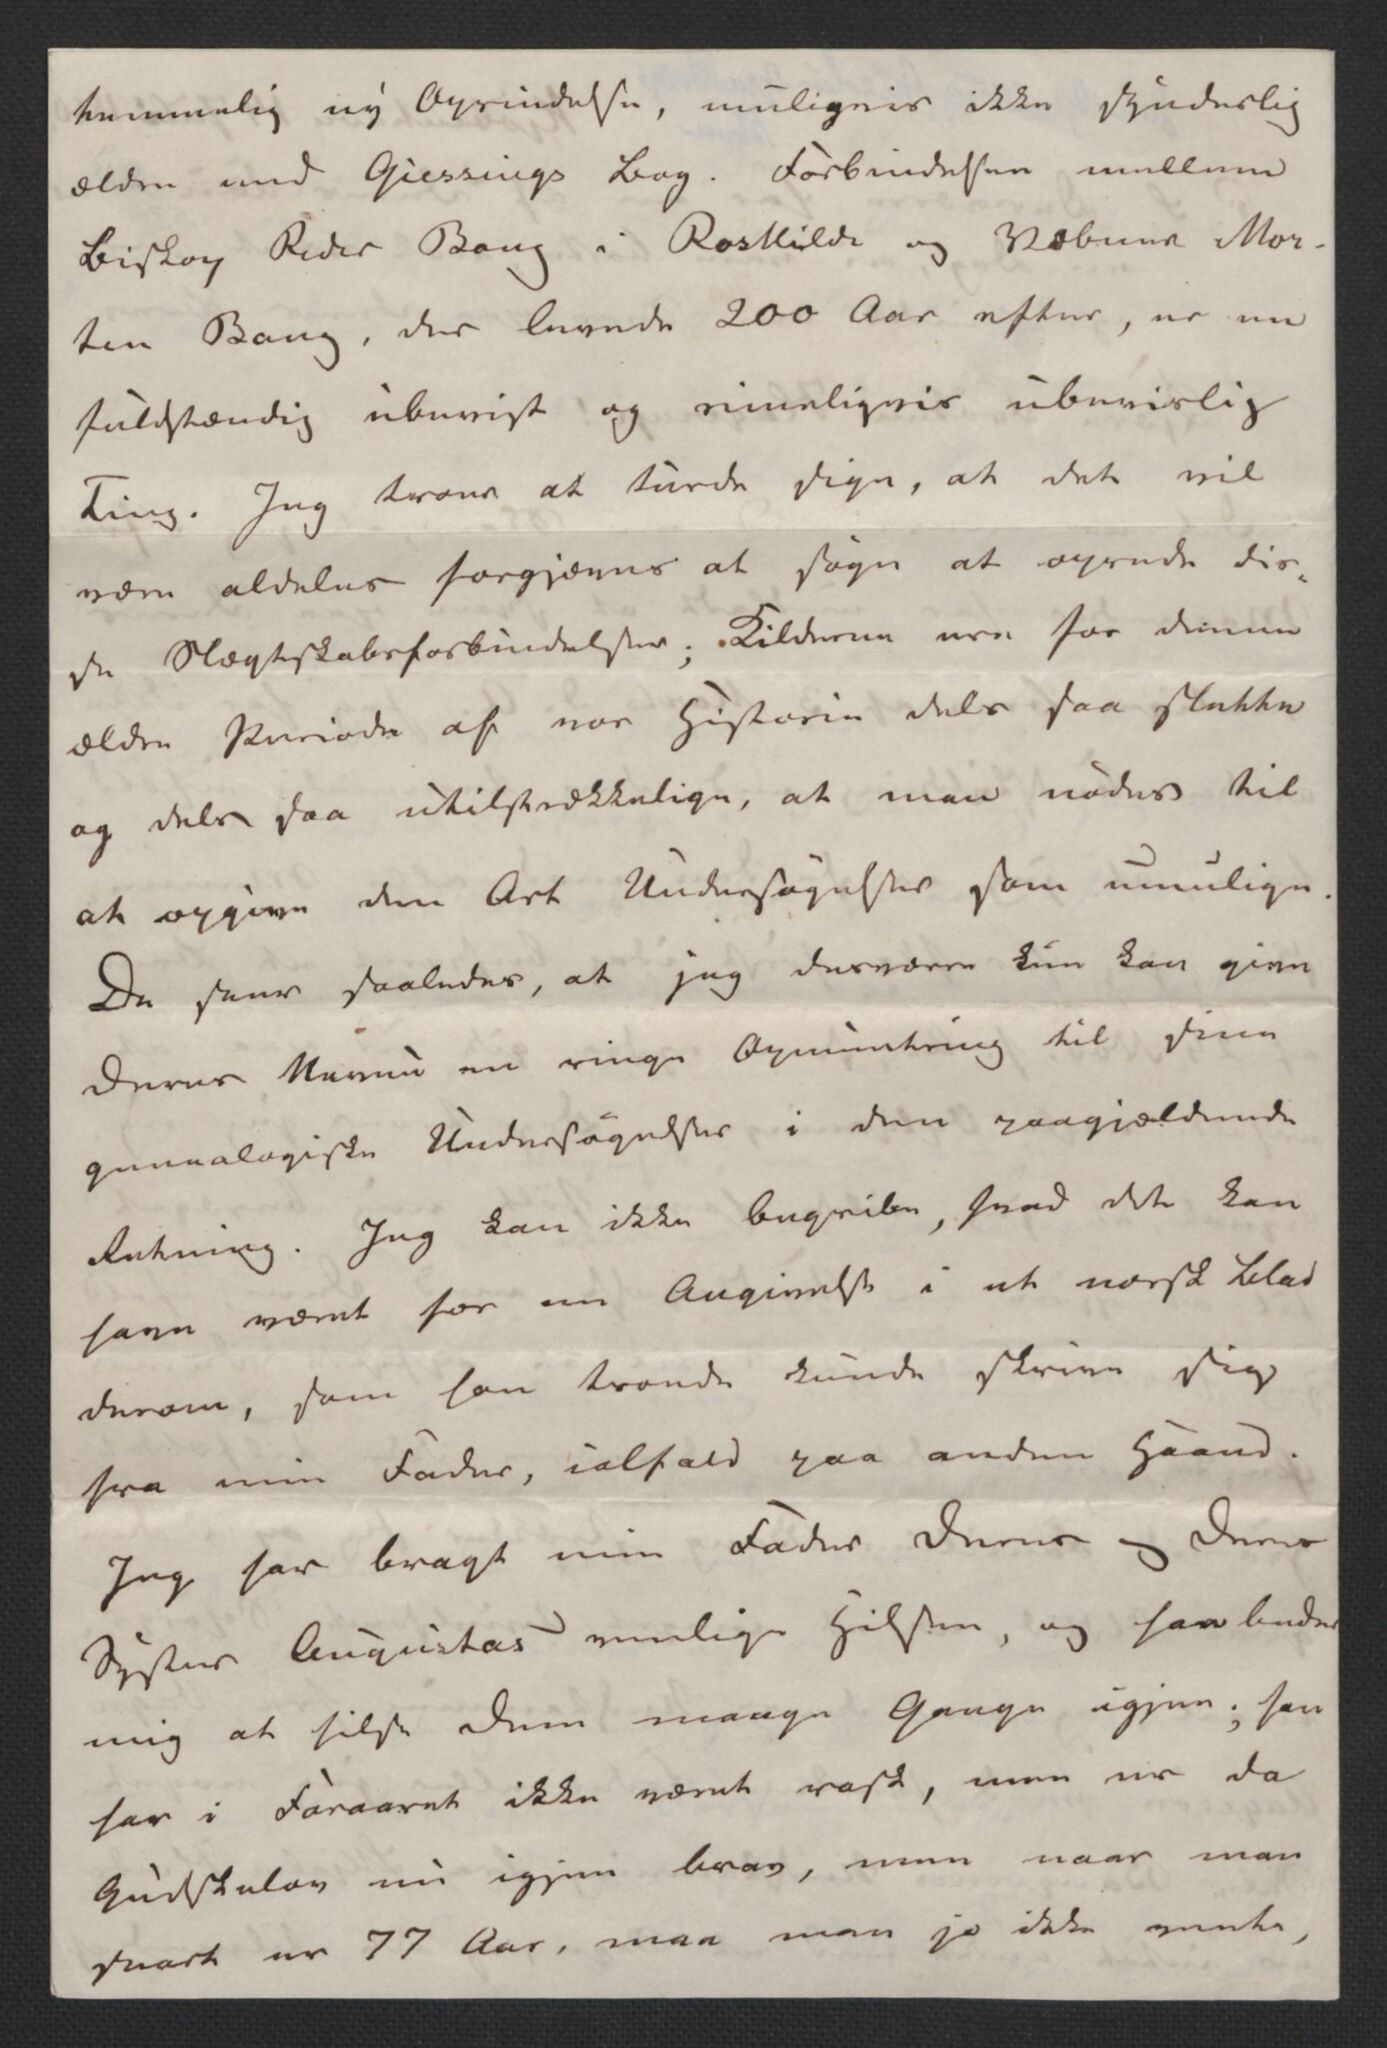 temmelig ny Oprindelse, muligvis ikke synderlig
ældre end Giessings Bog. Forbindelsen mellem
Biskop Peder Bang i Roskilde og Væbner Mor-
ten Bang, der levede 200 Aar efter, er en
fuldstændig ubevist og rimeligvis ubevislig
Ting. Jeg troer at turde sige, at det vil
være aldeles forgjæves at søge at oprede dis-
se Slægtskabsforbindelser; Kilderne ere for denne
ældre Periode af vor Historie dels saa slette
og dels saa utilstrækkelige, at man nødes til
at opgive den Art Undersøgelser som umulige.
De seer saaledes, at jeg desværre kun kan give
Deres Neveu en ringe Opmuntring til sine
genealogiske Undersøgelser i den paagjældende
Retning. Jeg kan ikke begribe, hvad det kan
have været for en Angivelse i et norsk Blad
derom, som han troede kunde skrive sig
fra min Fader, ialfald paa anden Haand.
Jeg har bragt min Fader Deres og Deres
Søster Augustas venlige Hilsen, og han beder
mig at hilse Dem mange Gange igjen; han
har i Foraaret ikke været rask, men er da
Gudskelov nu igjen brav, men naar man
snart er 77 Aar, maa man jo ikke vente,